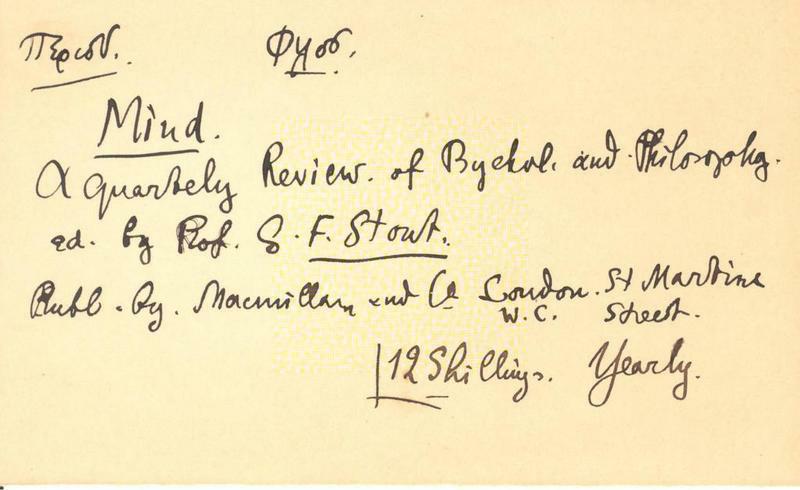 Περιοδ. Φλοσ.
Mind.
A quartely Review. of Psychol. and Philosophy.
ed. by Prof. G. F. Stout.
Publ. by. Macmillan and Co London. St Martins
W.C. Street.
12 Shillings. Yearly.